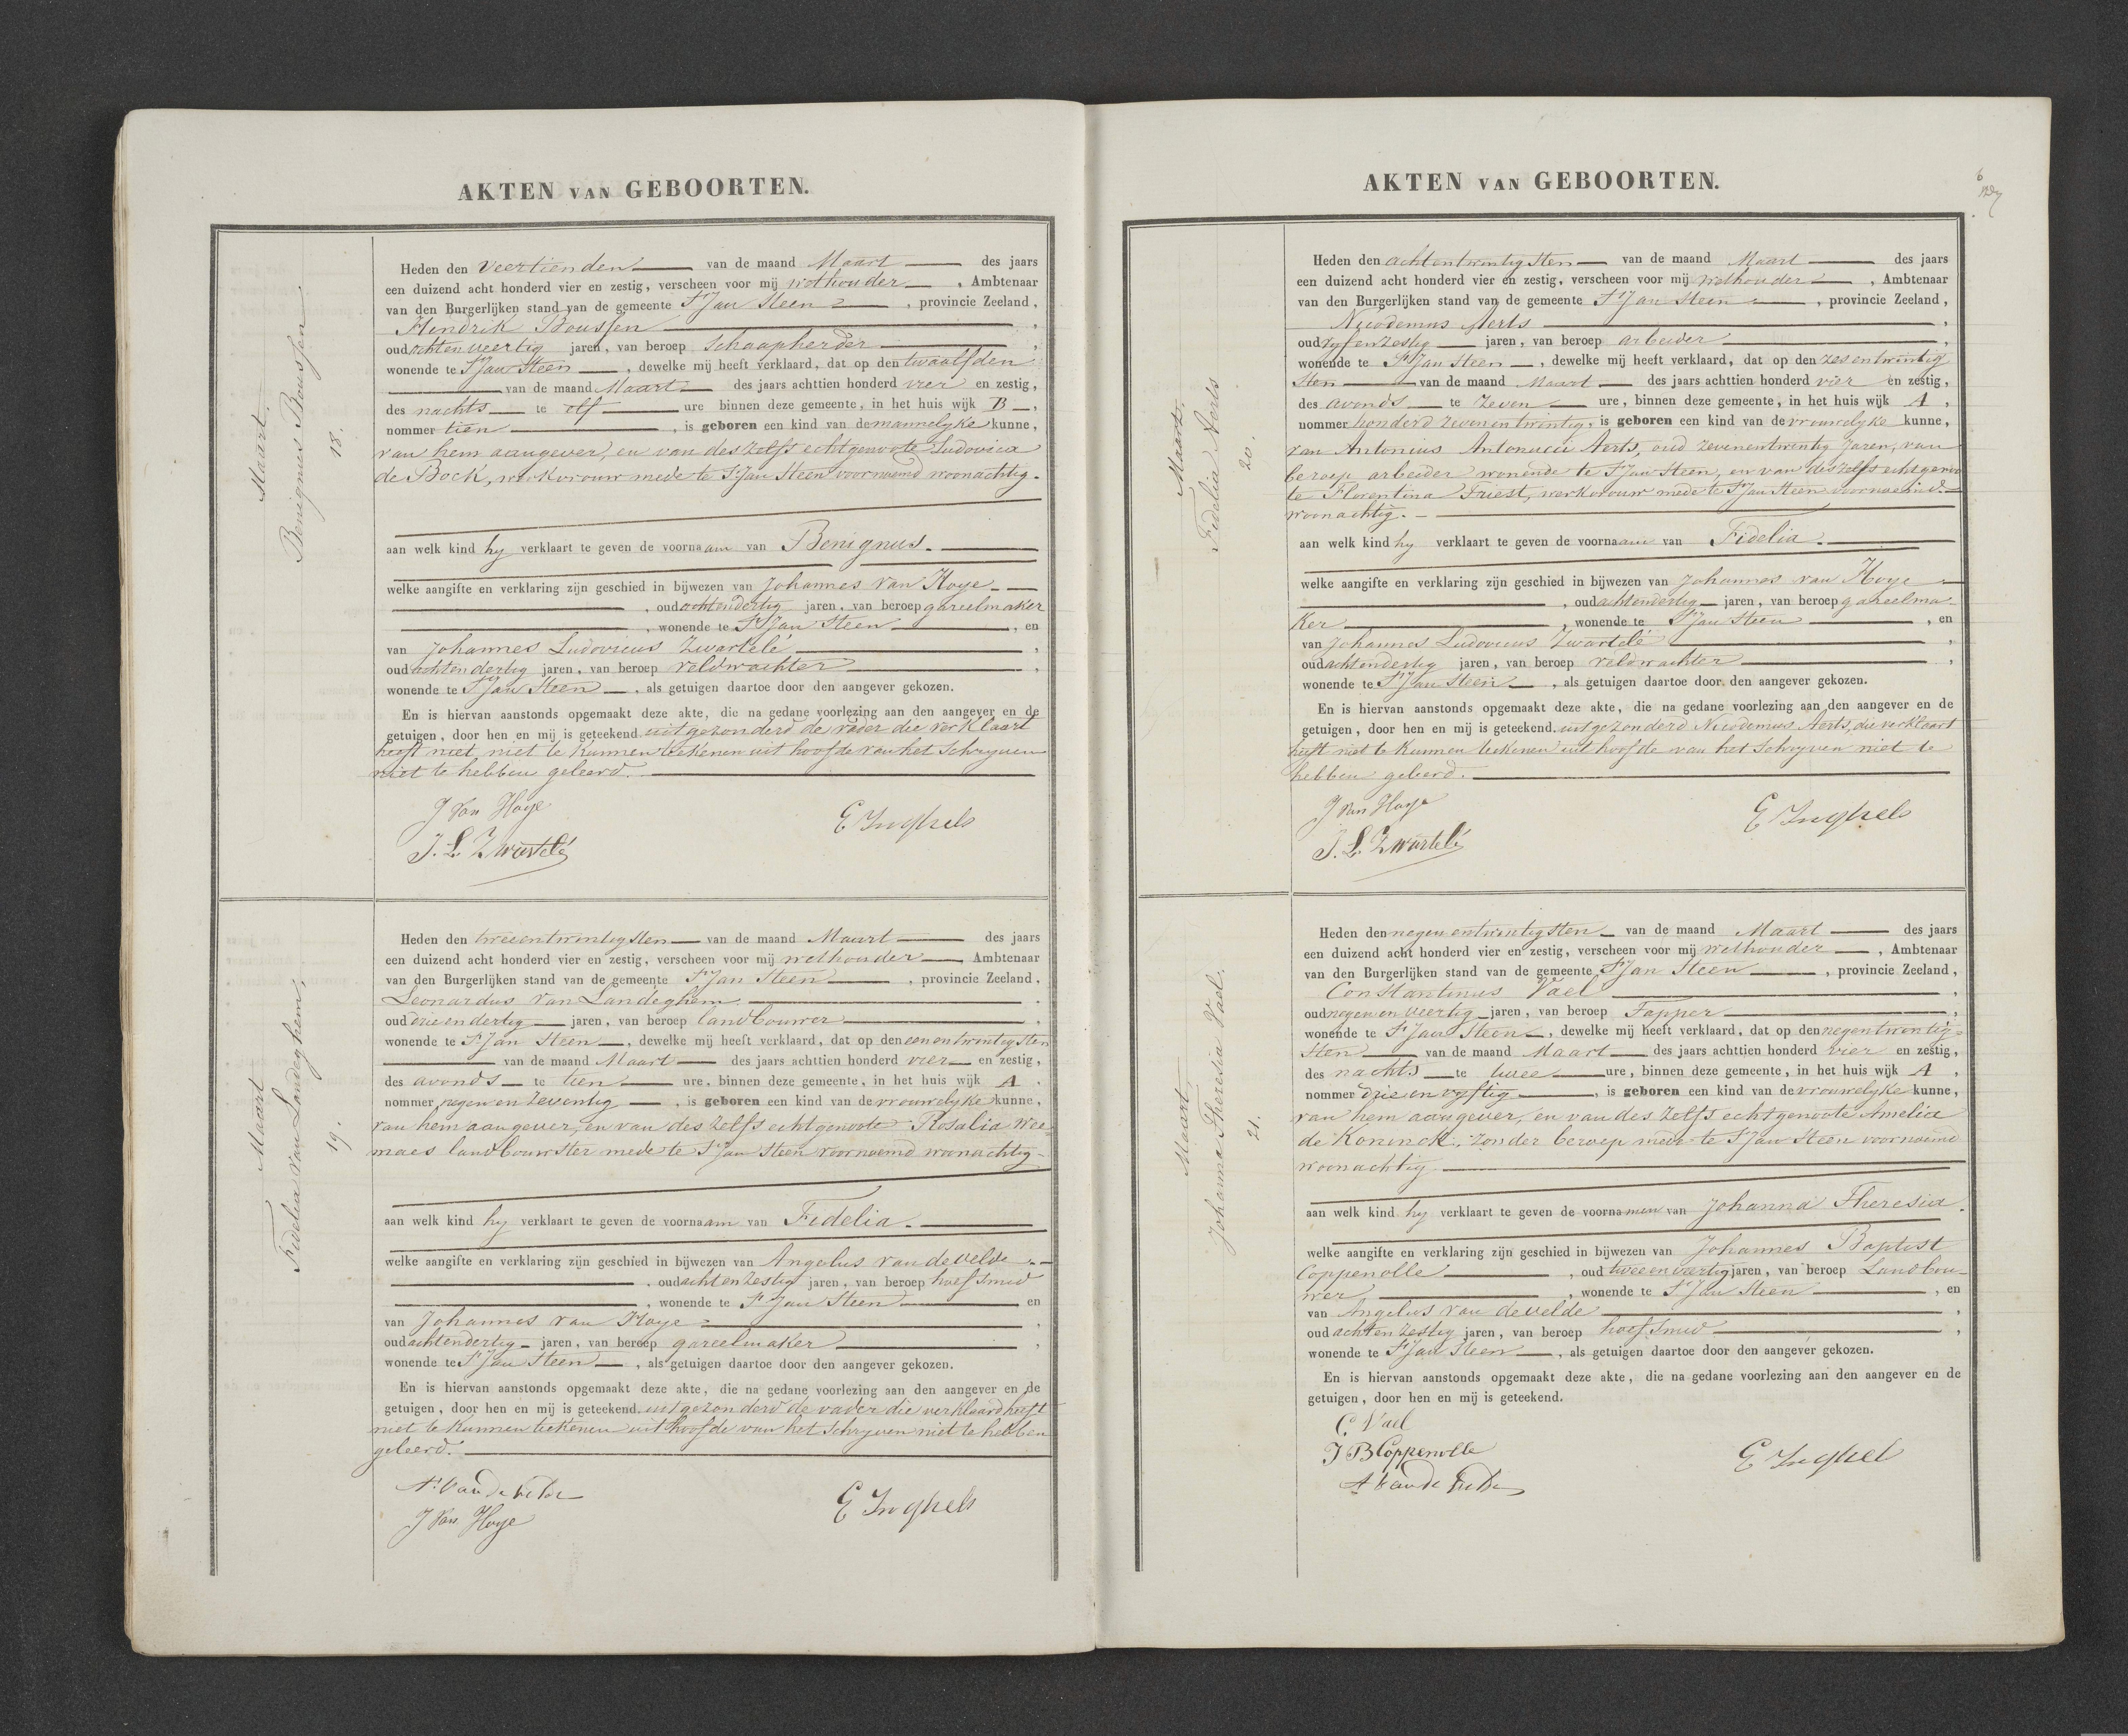 AKTEN VAN GEBOORTEN.
Maart.
Benignus Boussen
18.
Heden den veertienden van de maand Maart des jaars
een duizend acht honderd vier en zestig, verscheen voor mij wethouder, Ambtenaar
van den Burgerlijken stand van de gemeente St Jan Steen, provincie Zeeland,
Hendrik Boussen,
oud achtenveertig jaren, van beroep Schaapherder,
wonende te St Jan Steen, dewelke mij heeft verklaard, dat op den twaalfden
van de maand Maart des jaars achttien honderd vier en zestig,
des nachts te elf ure binnen deze gemeente, in het huis wijk B,
nommer tien, is geboren een kind van de mannelyke kunne,
van hem aangever, en van des zelfs echtgenoote Ludovica
de Bock, werkvrouw mede te St Jan Steen voornoemd woonachtig.
aan welk kind hy verklaart te geven de voornaam van Benignus.
welke aangifte en verklaring zijn geschied in bijwezen van Johannes van Hoye
, oud achtendertig jaren, van beroep gareelmaker
, wonende te St Jan Steen, en
van Johannes Ludovicus Zwartelé,
oud achtendertig jaren, van beroep veldwachter,
wonende te St Jan Steen, als getuigen daartoe door den aangever gekozen.
En is hiervan aanstonds opgemaakt deze akte, die na gedane voorlezing aan den aangever en de
getuigen, door hen en mij is geteekend. uitgezonderd de vader die verklaart
heeft niet, niet te kunnen teekenen uit hoofde van het Schryven
niet te hebben geleerd.
J Van Hoye
E Inghels
J. L. Zwartelé
Maart
Fidelia van Landeghem.
19.
Heden den tweeentwintigsten van de maand Maart des jaars
een duizend acht honderd vier en zestig, verscheen voor mij wethouder, Ambtenaar
van den Burgerlijken stand van de gemeente St Jan Steen, provincie Zeeland,
Leonardus van Landeghem.
oud drieendertig jaren, van beroep landbouwer,
wonende te St Jan Steen, dewelke mij heeft verklaard, dat op den eenentwintigsten
van de maand Maart des jaars achttien honderd vier en zestig,
des avonds te tien ure, binnen deze gemeente, in het huis wijk A,
nommer negen en zeventig, is geboren een kind van de vrouwelyke kunne,
van hem aangever, en van des zelfs echtgenoote Rosalia Wee
maes landbouwster mede te St Jan Steen voornoemd woonachtig.
aan welk kind hy verklaart te geven de voornaam van Fidelia.
welke aangifte en verklaring zijn geschied in bijwezen van Angelus van de velde
, oud achtenzestig jaren, van beroep hoefsmid
, wonende te St Jan Steen en
van Johannes van Hoye,
oud achtendertig jaren, van beroep gareelmaker,
wonende te St Jan Steen, als getuigen daartoe door den aangever gekozen.
En is hiervan aanstonds opgemaakt deze akte, die na gedane voorlezing aan den aangever en de
getuigen, door hen en mij is geteekend. uitgezonderd de vader die verklaard heeft
niet te kunnen teekenen uit hoofde van het Schryven niet te hebben
geleerd.
A. Van de Velde
J Van Hoye
E Inghels
AKTEN VAN GEBOORTEN.
6
Maart.
Fidelia Aerts
20.
Heden den achtentwintigsten van de maand Maart des jaars
een duizend acht honderd vier en zestig, verscheen voor mij wethouder, Ambtenaar
van den Burgerlijken stand van de gemeente St Jan Steen, provincie Zeeland,
Nicodemus Aerts,
oud vyfenzestig jaren, van beroep arbeider,
wonende te St Jan Steen, dewelke mij heeft verklaard, dat op den zesentwintig
sten van de maand Maart des jaars achttien honderd vier en zestig,
des avonds te zeven ure, binnen deze gemeente, in het huis wijk A,
nommer honderd zevenentwintig, is geboren een kind van de vrouwelyke kunne,
van Antonius Antonucci Aerts, oud zevenentwintig jaren, van
beroep arbeider wonende te St Jan Steen, en van des zelfs echtgenoo
te Florentina Driest, werkvrouw mede te St Jan Steen voornoemd
woonachtig.
aan welk kind hy verklaart te geven de voornaam van Fidelia.
welke aangifte en verklaring zijn geschied in bijwezen van Johannes van Hoye
, oud achtendertig jaren, van beroep gareelma
ker, wonende te St Jan Steen, en
van Johannes Ludovicus Zwartelé,
oud achtendertig jaren, van beroep veldwachter,
wonende te St Jan Steen, als getuigen daartoe door den aangever gekozen.
En is hiervan aanstonds opgemaakt deze akte, die na gedane voorlezing aan den aangever en de
getuigen, door hen en mij is geteekend. uitgezonderd Nicodemus Aerts, die verklaart
heeft niet te kunnen teekenen uit hoofde van het Schryven niet te
hebben geleerd.
J Van Hoye
E Inghels
J. L. Zwartelé
Maart,
Johanna Theresia Vael.
21.
Heden den negenentwintigsten van de maand Maart des jaars
een duizend acht honderd vier en zestig, verscheen voor mij wethouder, Ambtenaar
van den Burgerlijken stand van de gemeente St Jan Steen, provincie Zeeland,
Constantinus Vael,
oud negenenveertig jaren, van beroep Tapper,
wonende te St Jan Steen, dewelke mij heeft verklaard, dat op den negentwintig
sten van de maand Maart des jaars achttien honderd vier en zestig,
des nachts te twee ure, binnen deze gemeente, in het huis wijk A,
nommer drie en vyftig, is geboren een kind van de vrouwelyke kunne,
van hem aangever, en van des zelfs echtgenoote Amelia
de Koninck, zonder beroep mede te St Jan Steen voornoemd
woonachtig
aan welk kind hy verklaart te geven de voornamen van Johanna Theresia.
welke aangifte en verklaring zijn geschied in bijwezen van Johannes Baptist
Coppenolle, oud tweeenveertig jaren, van beroep Landbou
wer, wonende te St Jan Steen, en
van Angelus van de velde,
oud achtenzestig jaren, van beroep hoefsmid,
wonende te St Jan Steen, als getuigen daartoe door den aangever gekozen.
En is hiervan aanstonds opgemaakt deze akte, die na gedane voorlezing aan den aangever en de
getuigen, door hen en mij is geteekend.
C. Vael
J B Coppenolle
E Inghel
A Van de Velde